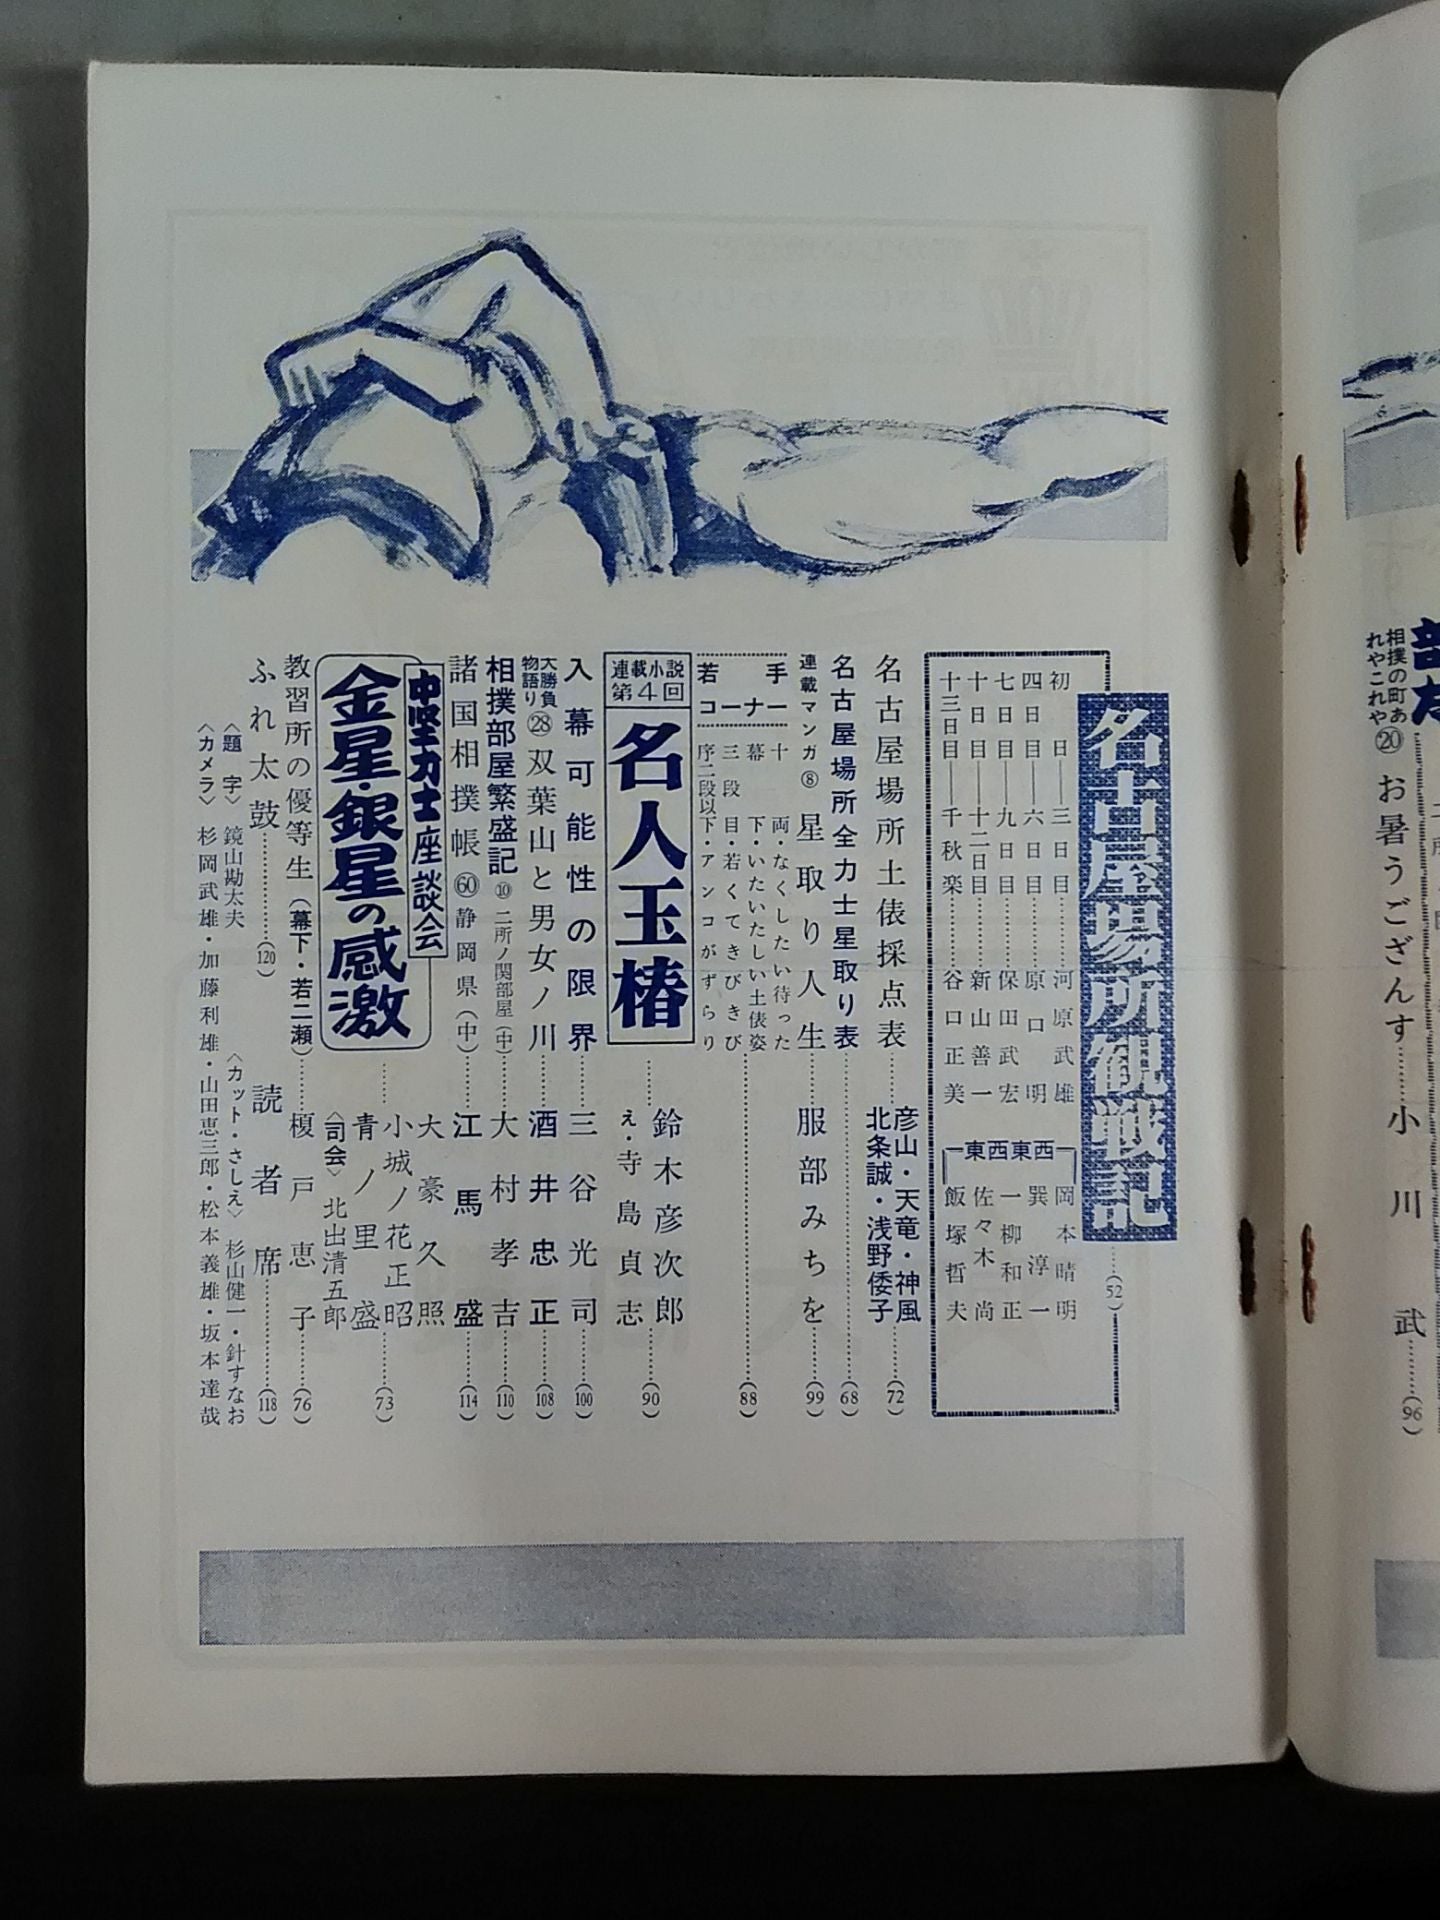 相撲の町あ
れやこれや
⑳
お暑うござんす……小川武……(96)
名古屋場所観戦記……(52)
初日――三日目……河原武雄
四日目――六日目……原口明
七日目――九日目……保田武宏
十日目――十二日目……新山善一
十三日目――千秋楽……谷口正美
西 岡本晴明
東 巽淳一
西 一柳和正
東 佐々木尚
飯塚哲夫
名古屋場所土俵採点表……彦山・天竜・神風
北条誠・浅野倭子……(72)
名古屋場所全力士星取り表……(68)
連載マンガ⑧ 星取り人生……服部みちを……(99)
若手コーナー
十両・なくしたい待った
幕下・いたいたしい土俵姿
三段目・若くてきびきび
序二段以下・アンコがずらり
……(88)
連載小説
第4回
名人玉椿……鈴木彦次郎
え・寺島貞志……(90)
入幕可能性の限界……三谷光司……(100)
大勝負
物語り
㉘ 双葉山と男女ノ川……酒井忠正……(108)
相撲部屋繁盛記⑩ 二所ノ関部屋(中)……大村孝吉……(110)
諸国相撲帳㊿ 静岡県(中)……江馬盛……(114)
中堅力士座談会
金星・銀星の感激……大豪久照
小城ノ花正昭
青ノ里盛
〈司会〉北出清五郎
……(73)
教習所の優等生(幕下・若二瀬)……榎戸恵子……(76)
ふれ太鼓……(120)
読者席……(118)
〈題字〉鏡山勘太夫
〈カット・さしえ〉杉山健一・針すなお
〈カメラ〉杉岡武雄・加藤利雄・山田恵三郎・松本義雄・坂本達哉